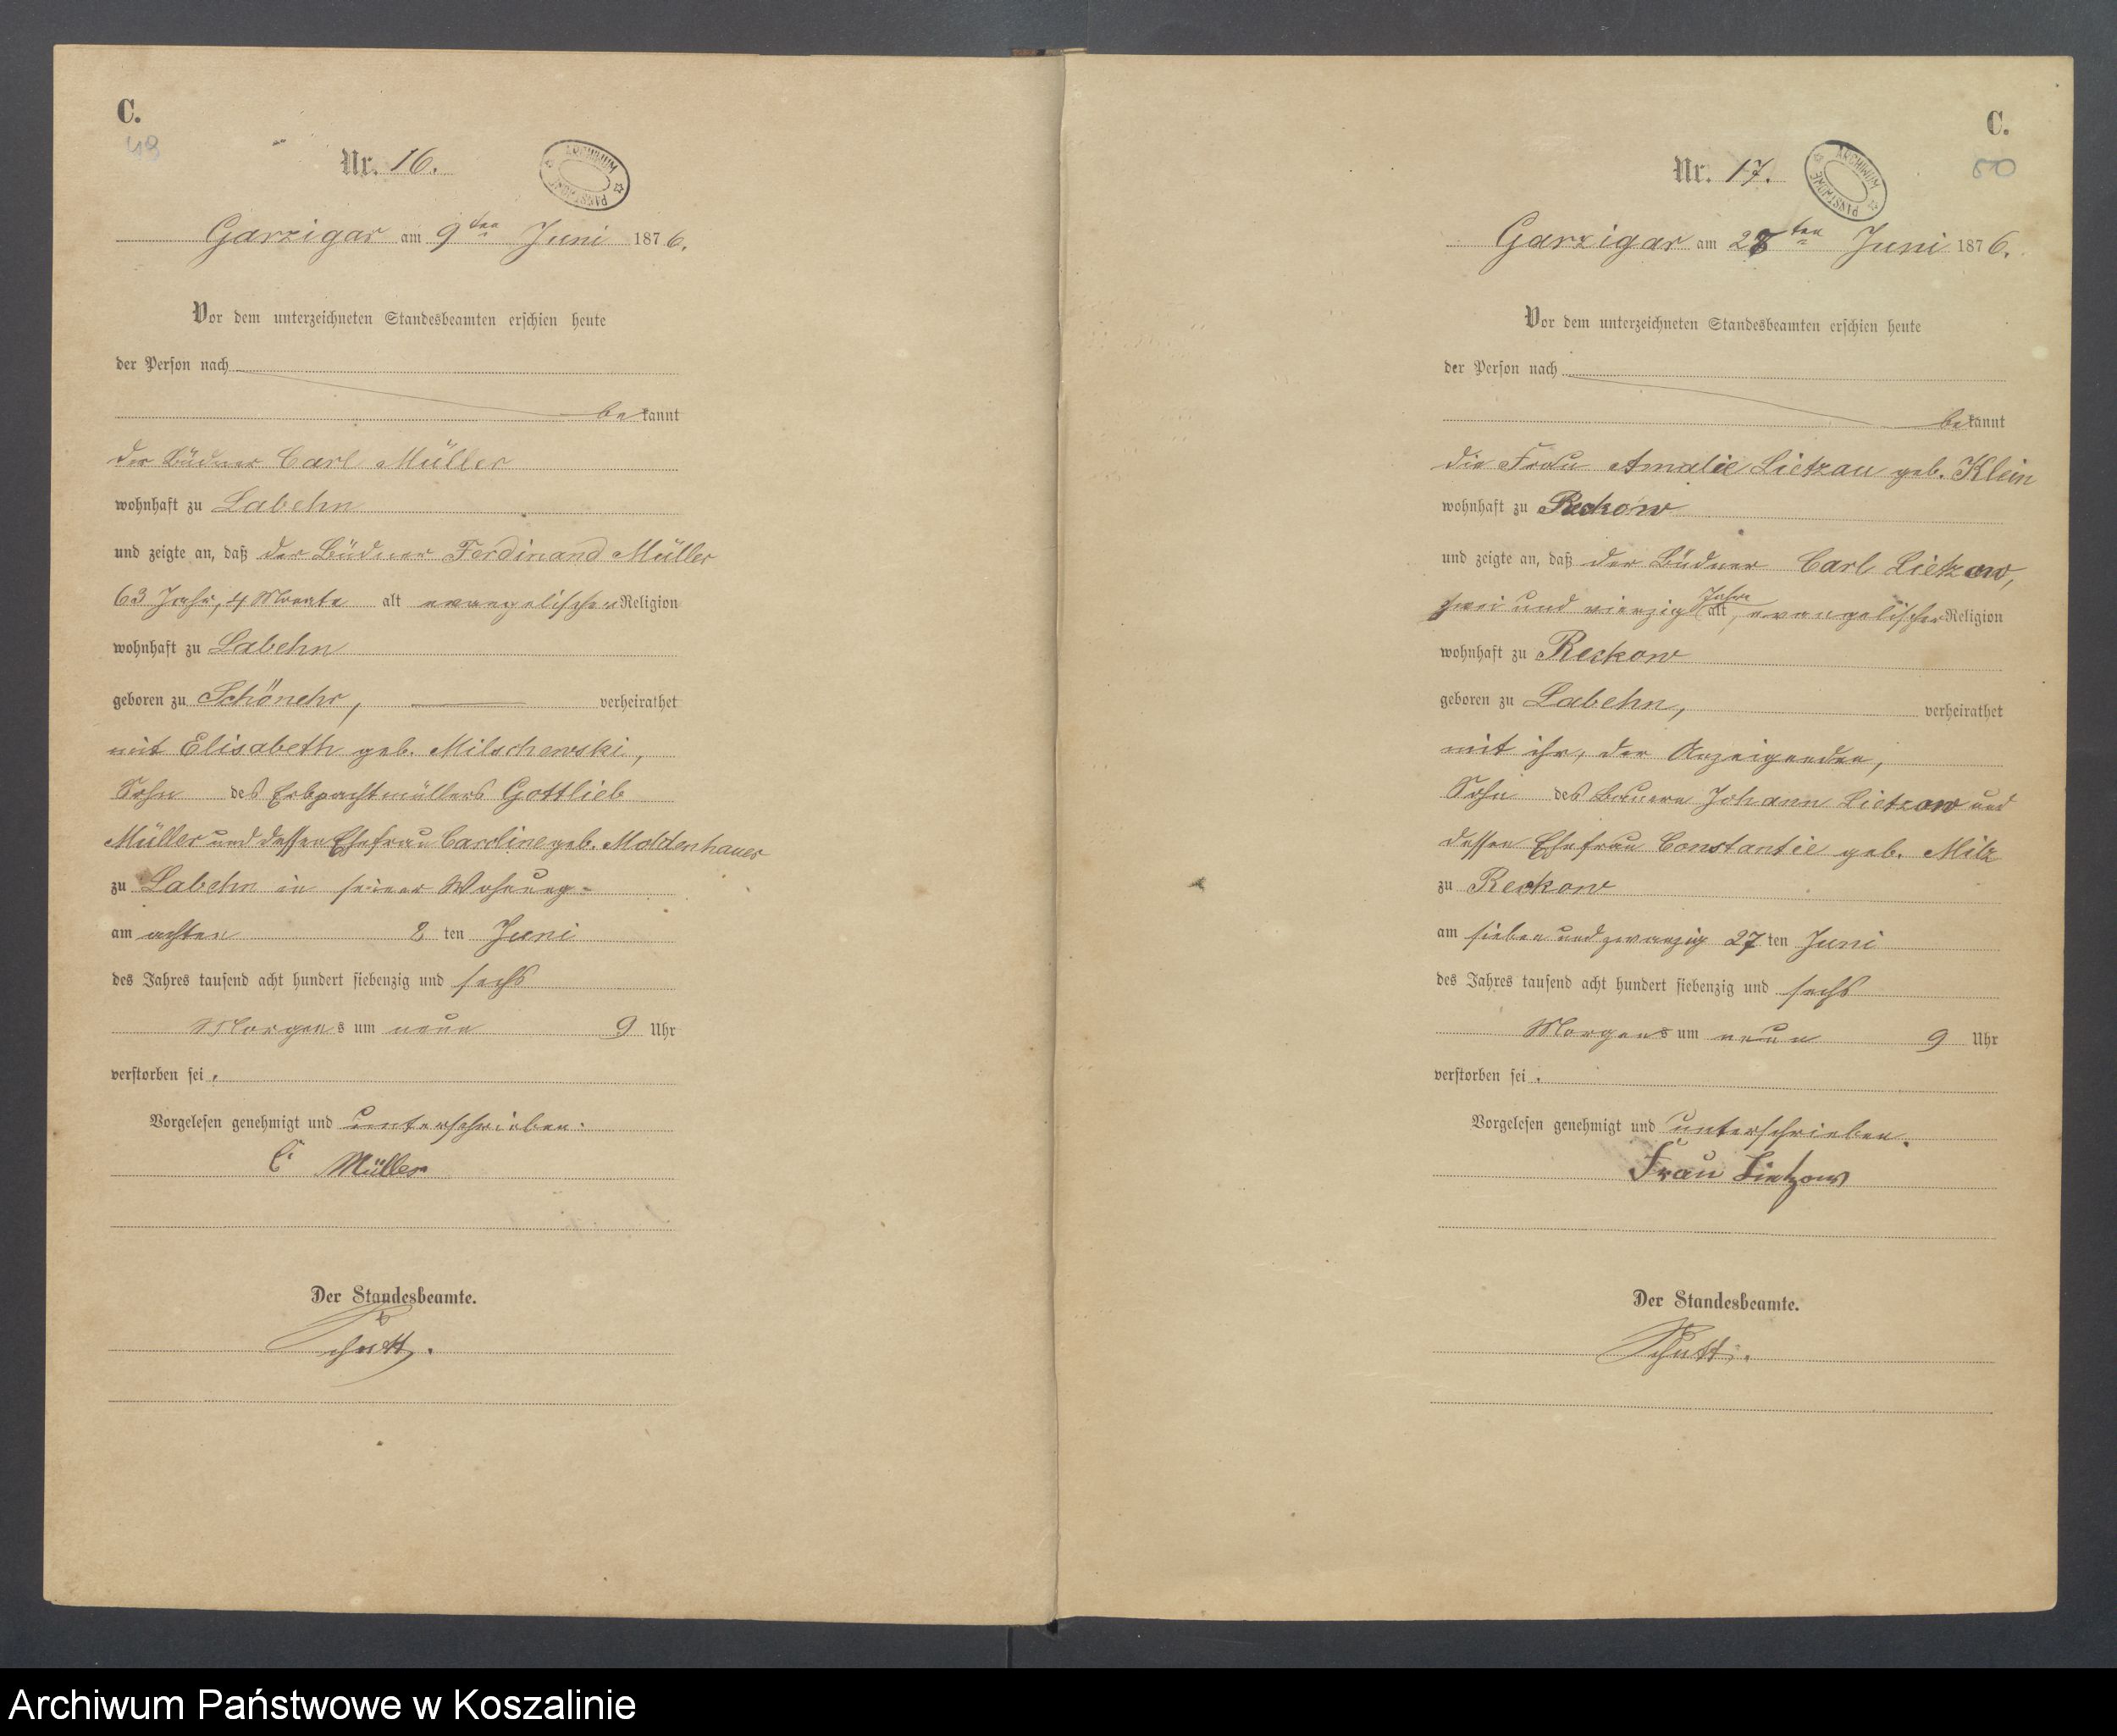 C.
49
Nr. 16.
ARCHIWUM PAŃSTWOWE
Garzigar am 9ten Juni 1876.
Vor dem unterzeichneten Standesbeamten erschien heute
der Person nach
bekannt
der Büdner Carl Müller
wohnhaft zu Labehn
und zeigte an, daß der Büdner Ferdinand Müller
63 Jahr, 4 Monate alt evangelischer Religion
wohnhaft zu Labehn
geboren zu Schönehr, verheirathet
mit Elisabeth geb. Milschewski,
Sohn des Erbpachtmüllers Gottlieb
Müller und dessen Ehefrau Caroline geb. Moldenhauer
zu Labehn in seiner Wohnung
am achten 8 ten Juni
des Jahres tausend acht hundert siebenzig und sechs
Morgens um neun 9 Uhr
verstorben sei.
Vorgelesen genehmigt und unterschrieben.
C. Müller
Der Standesbeamte.
C.
50
Nr. 17.
ARCHIWUM PAŃSTWOWE
Garzigar am 28ten Juni 1876.
Vor dem unterzeichneten Standesbeamten erschien heute
der Person nach
bekannt
die Frau Amalie Lietzau geb. Klein
wohnhaft zu Reckow
und zeigte an, daß der Büdner Carl Lietzow,
zwei und vierzig Jahre alt, evangelischer Religion
wohnhaft zu Reckow
geboren zu Labehn, verheirathet
mit ihr, der Anzeigenden,
Sohn des Bauern Johann Lietzow und
dessen Ehefrau Constantie geb. Milz
zu Reckow
am sieben und zwanzig 27 ten Juni
des Jahres tausend acht hundert siebenzig und sechs
Morgens um neun 9 Uhr
verstorben sei.
Vorgelesen genehmigt und unterschrieben.
Frau Lietzow
Der Standesbeamte.
Archiwum Państwowe w Koszalinie